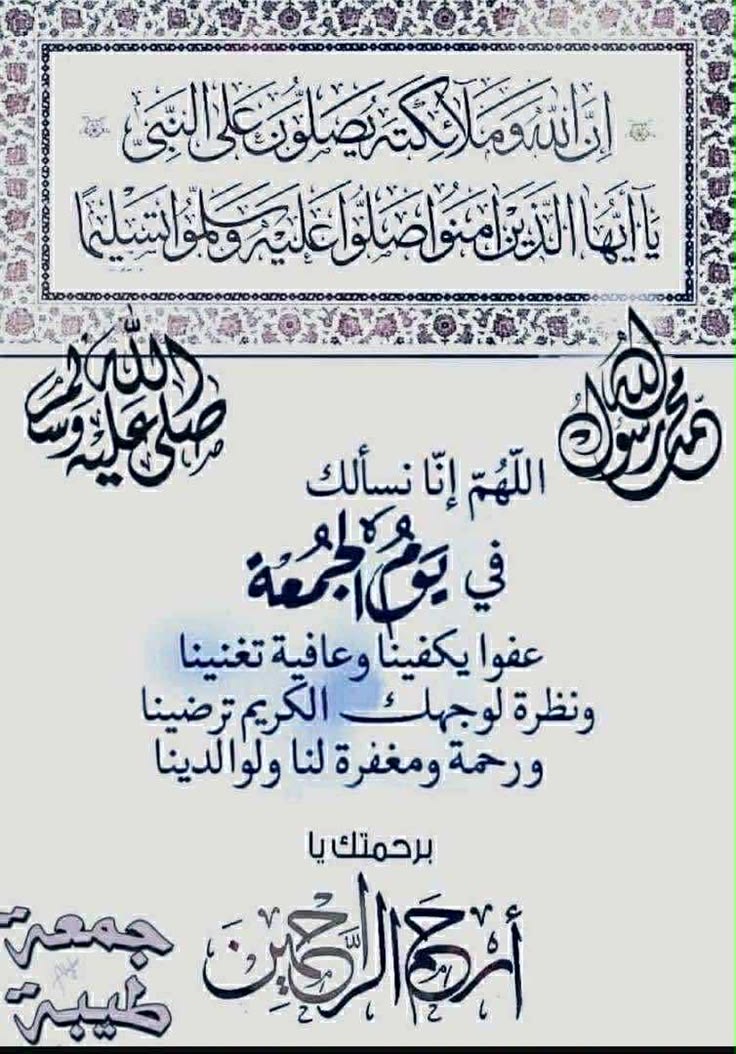 إن الله وملائكته يصلون على النبي
يا أيها الذين آمنوا صلوا عليه وسلموا تسليما
محمد رسول الله
صلى الله عليه وسلم
اللّهُمّ إنّا نسألك
في يَومُ الجُمُعة
عفوا يكفينا وعافية تغنينا
ونظرة لوجهك الكريم ترضينا
ورحمة ومغفرة لنا ولوالدينا
برحمتك يا
أرحم الراحمين
جمعة
طيبة